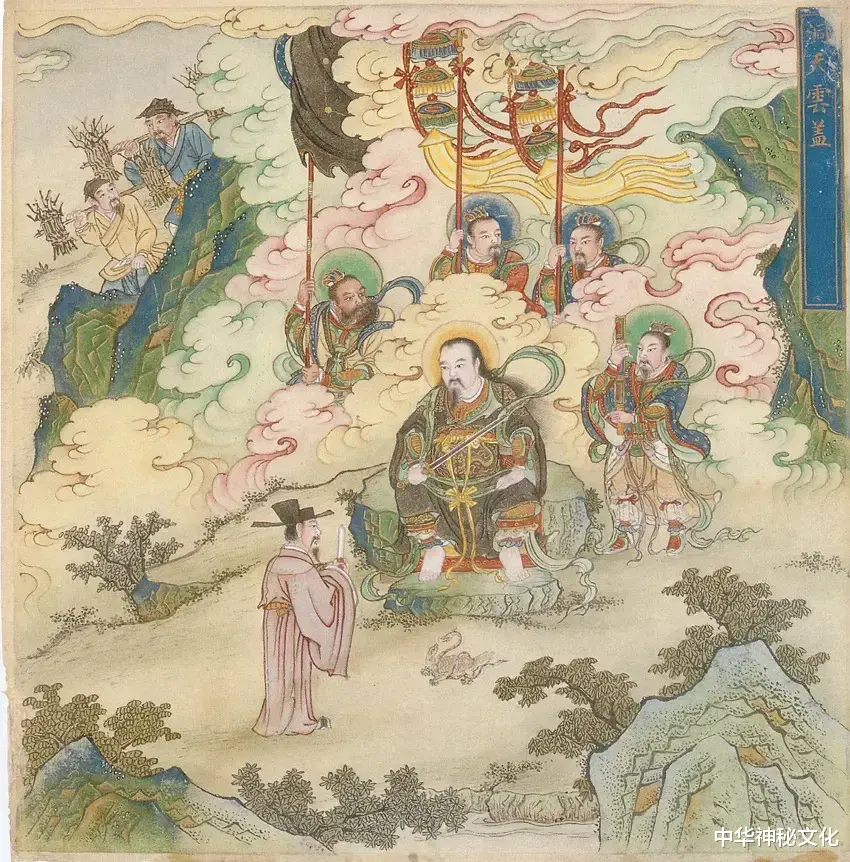 洞天雲盖
中华神秘文化